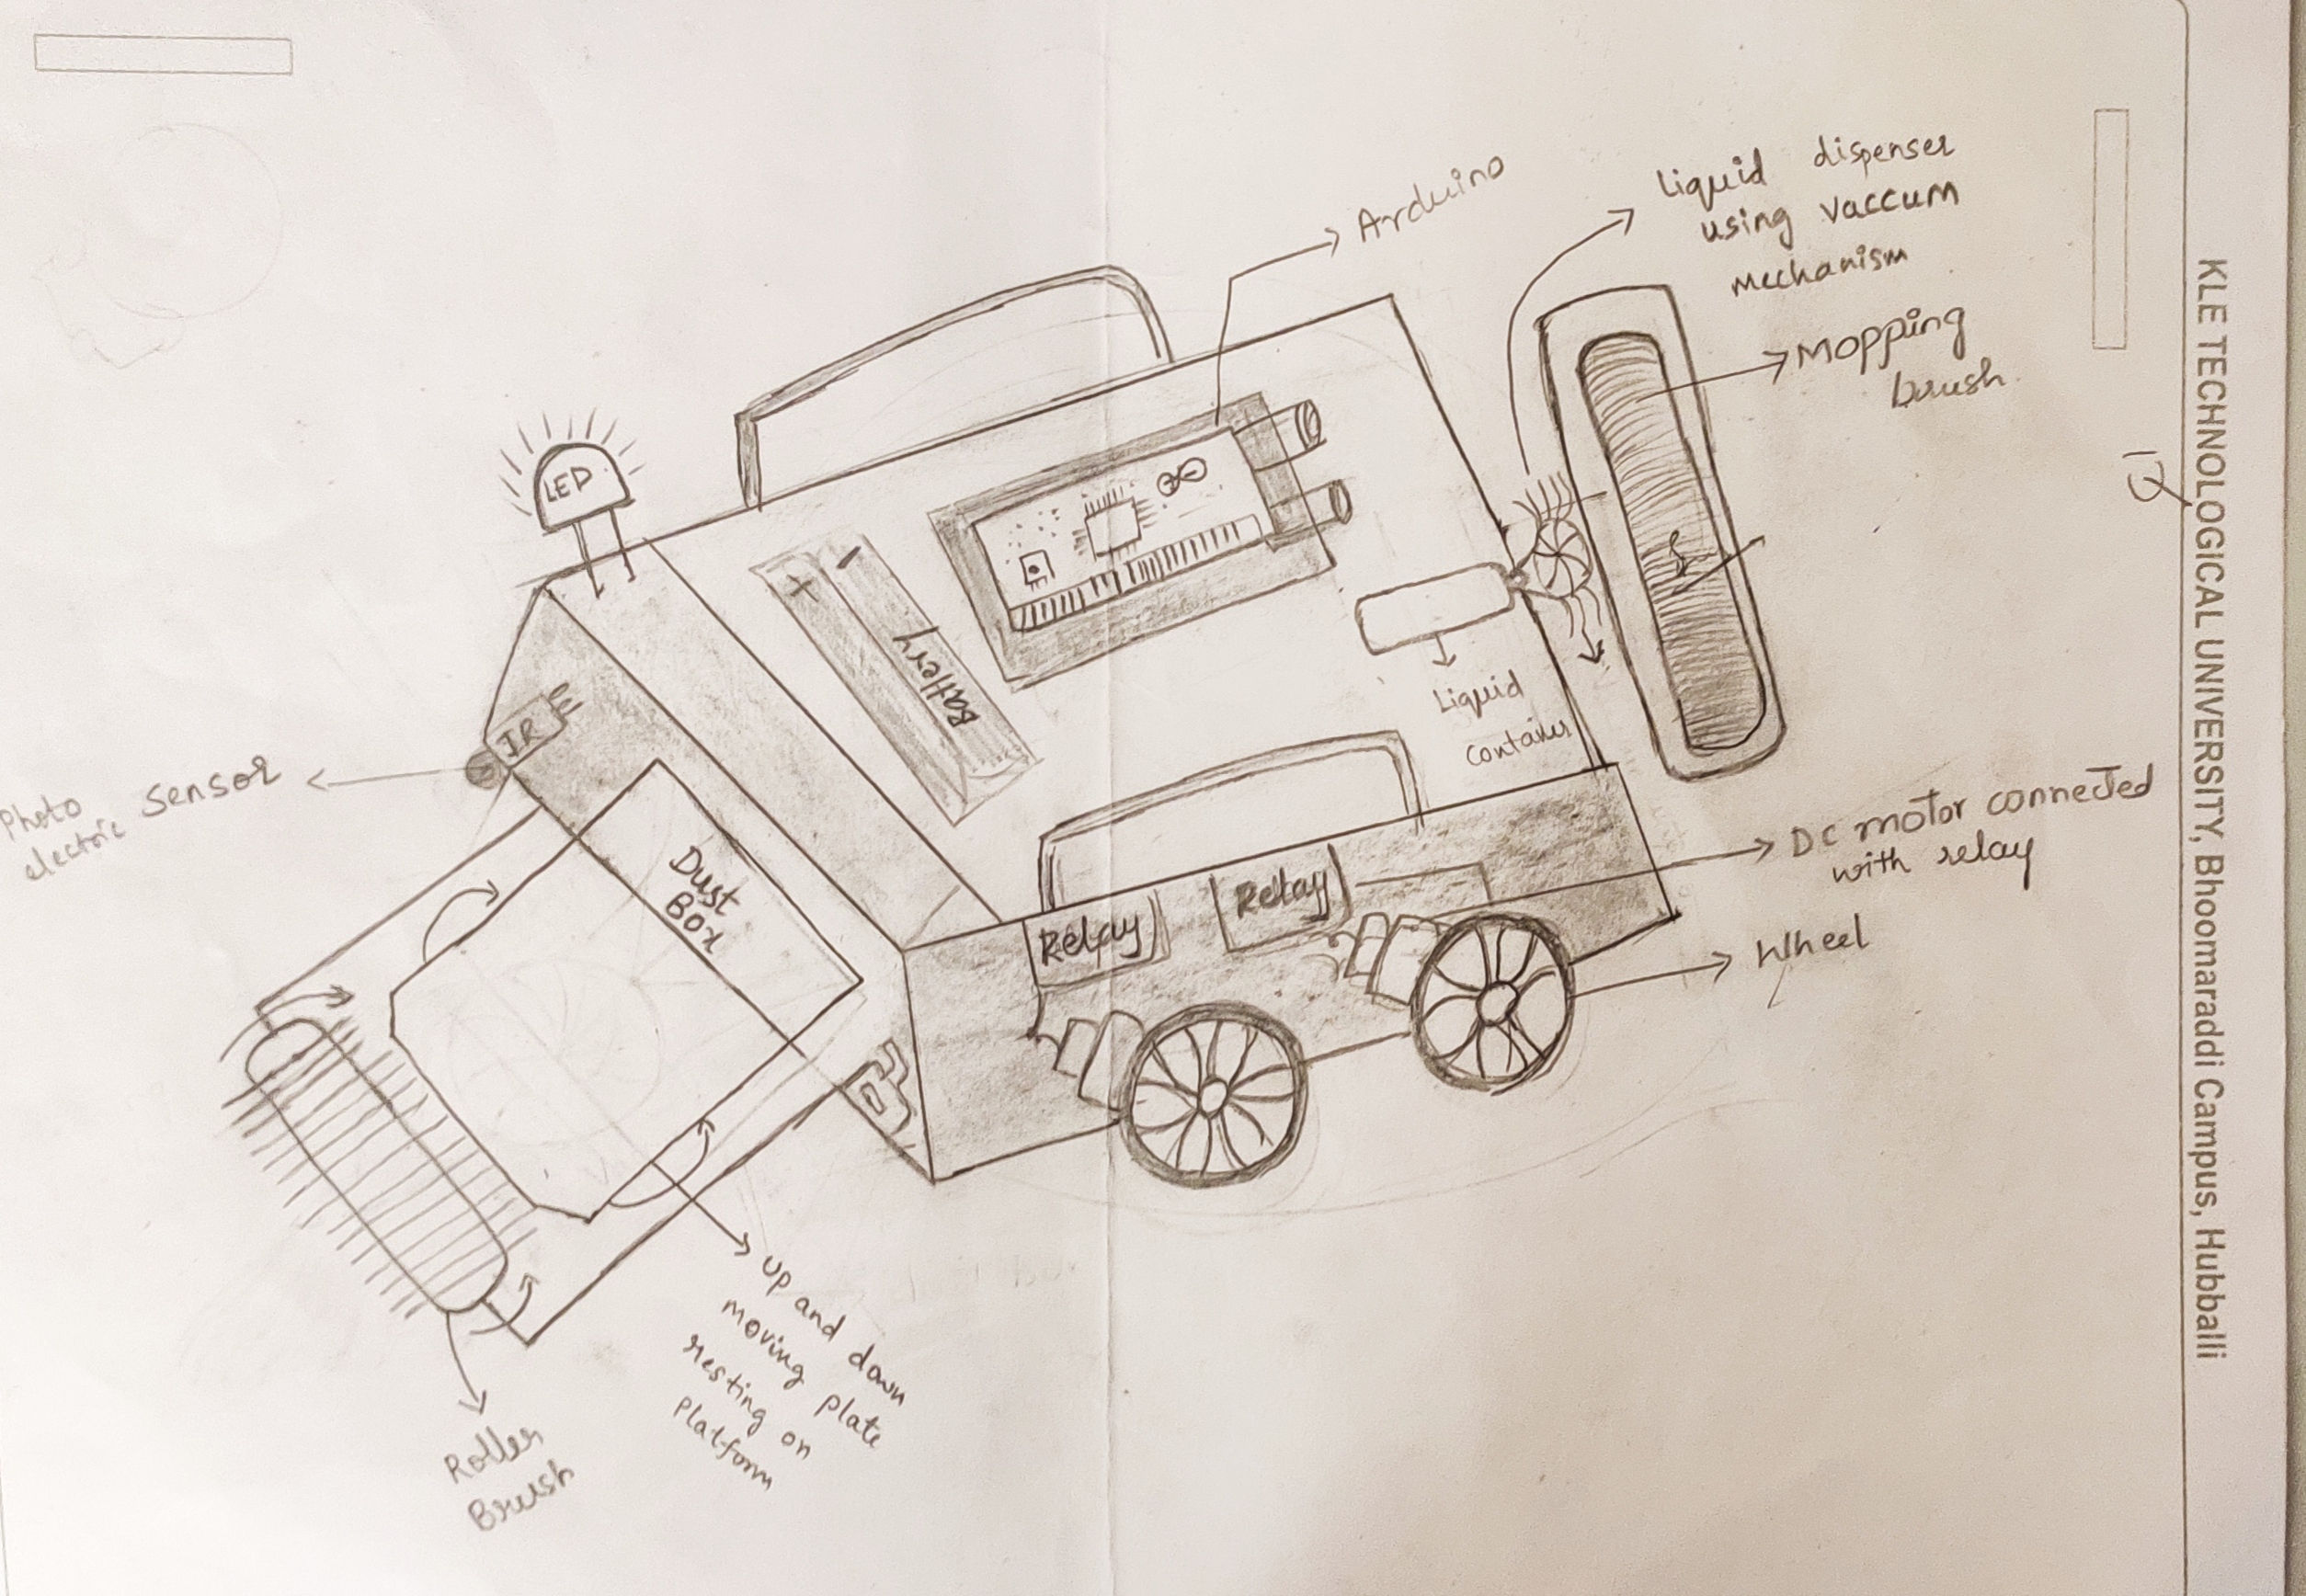 Arduino
Liquid dispenser
using vaccum
mechanism
Mopping
brush
LED
+ -
Battery
Liquid
Container
IR
Photo
electric sensor
Dust
Box
Relay
Relay
DC motor connected
with relay
Wheel
up and down
moving plate
resting on
platform
Roller
Brush
KLE TECHNOLOGICAL UNIVERSITY, Bhoomaraddi Campus, Hubballi